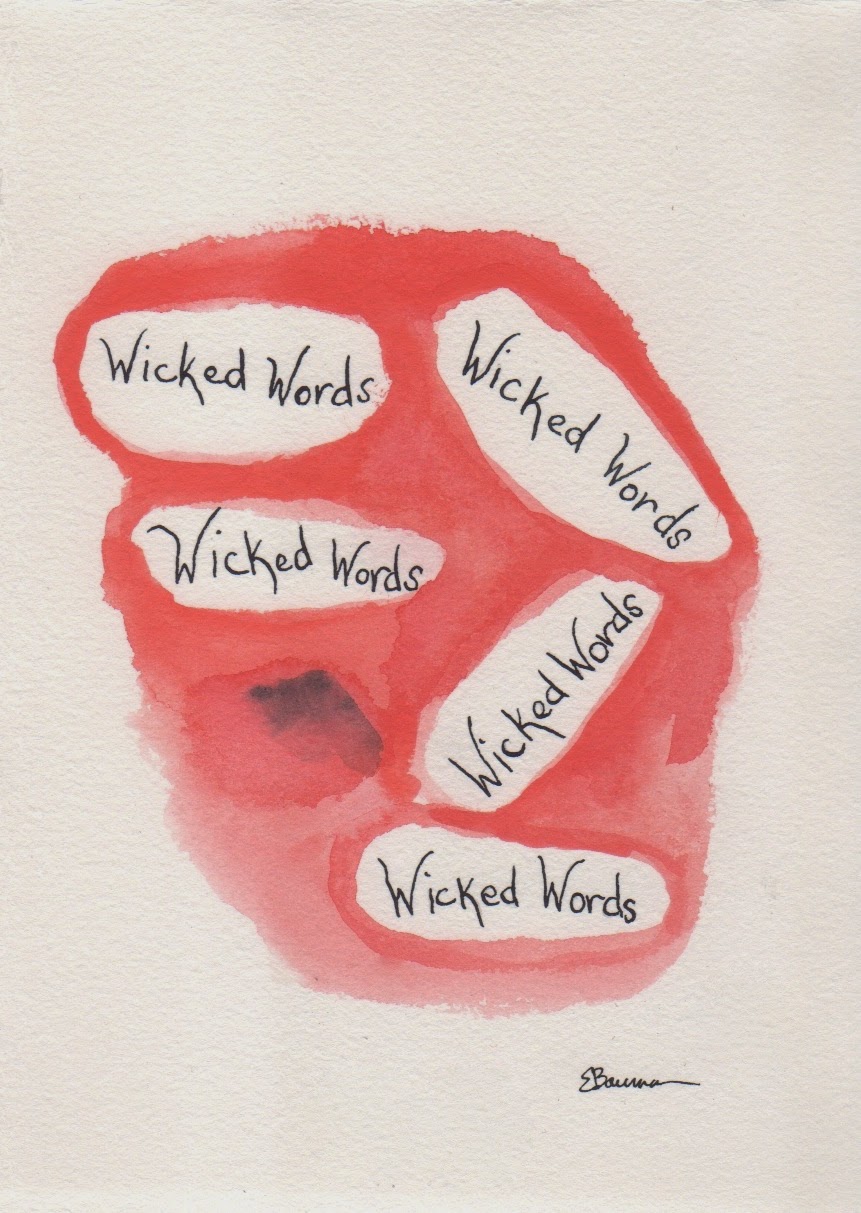 Wicked Words
Wicked Words
Wicked Words
Wicked Words
Wicked Words
EBowman